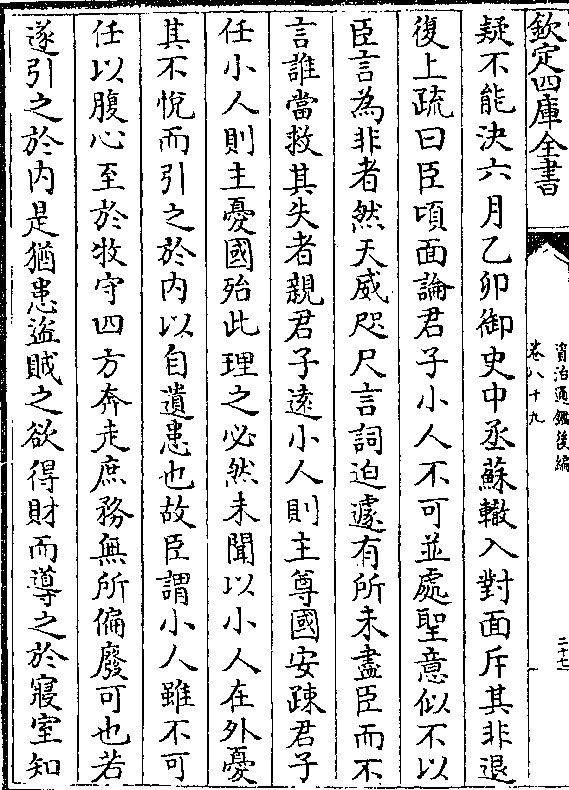 欽定四庫全書
資治通鑑後編
卷八十九
二十七
疑不能決六月乙卯御史中丞蘇轍入對面斥其非退
復上疏曰臣頃面論君子小人不可並處聖意似不以
臣言為非者然天威咫尺言詞迫遽有所未盡臣而不
言誰當救其失者親君子遠小人則主尊國安疎君子
任小人則主憂國殆此理之必然未聞以小人在外憂
其不悅而引之於内以自遺患也故臣謂小人雖不可
任以腹心至於牧守四方奔走庶務無所偏廢可也若
遂引之於内是猶患盜賊之欲得財而導之於寢室知